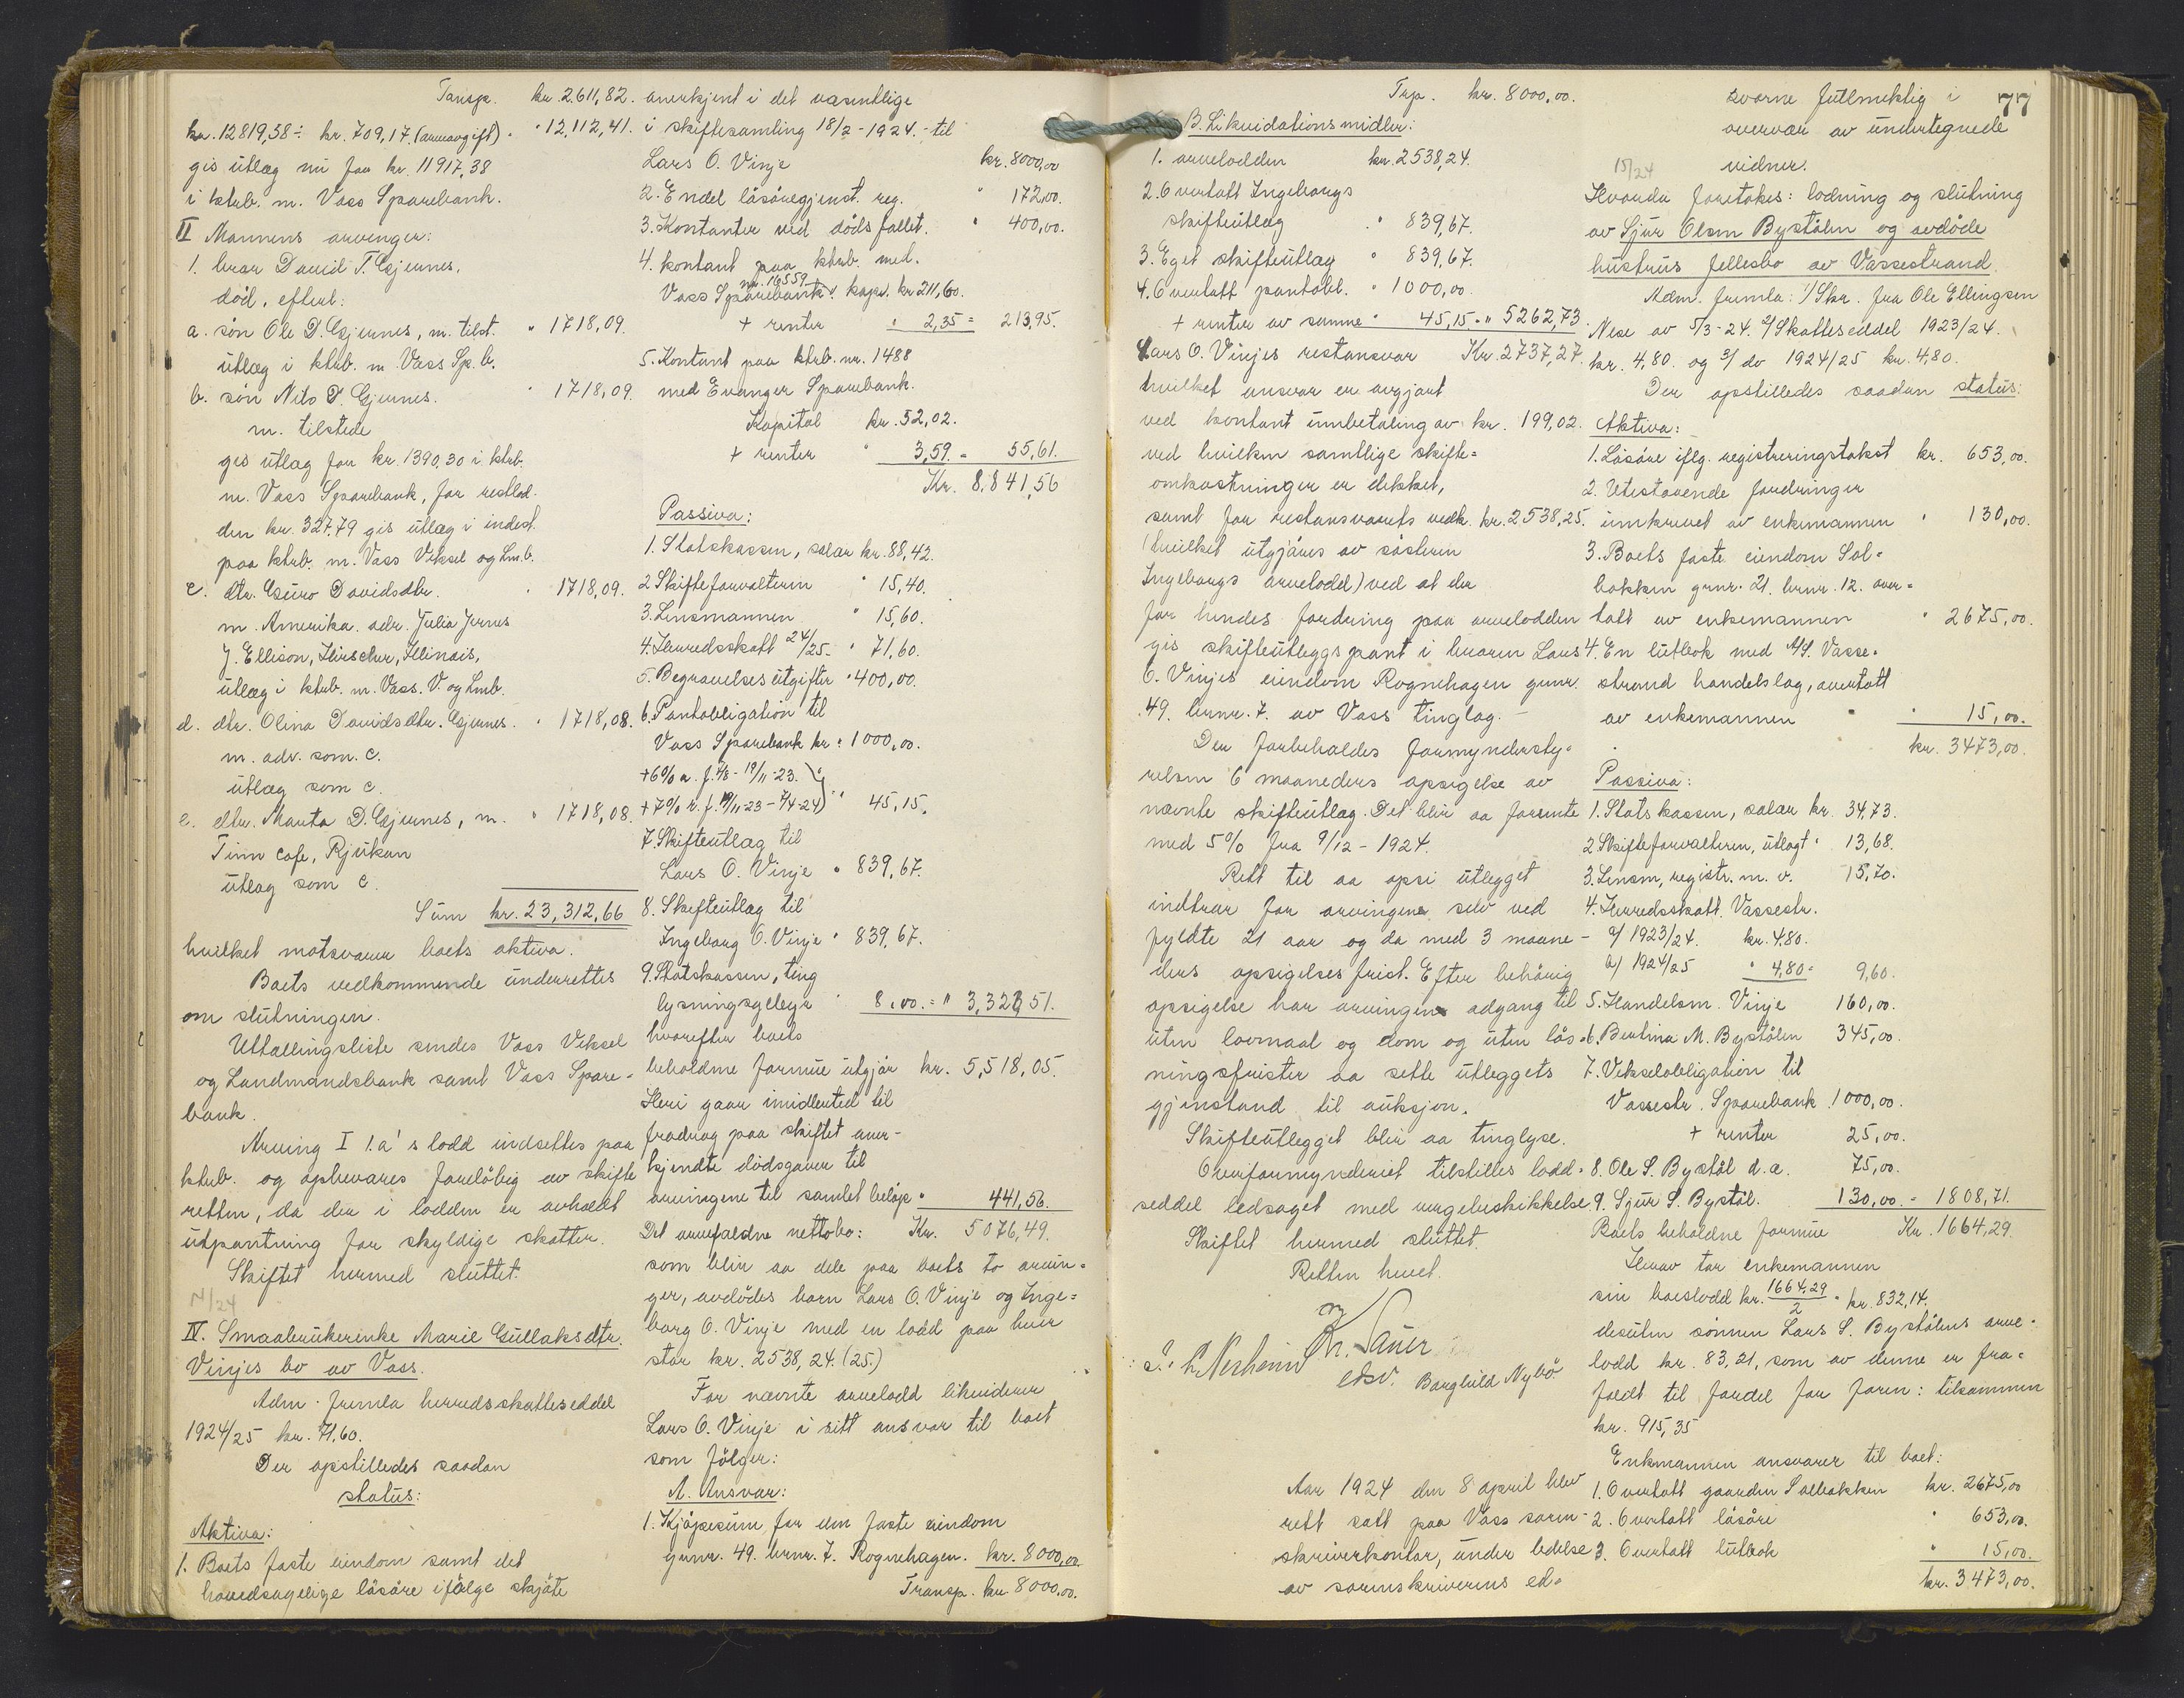 Transp. kr. 2.611,82.
kr. 12819,58 ÷ kr. 709,17 (arveavgift) " 12,112,41.
gis utlæg nu for kr. 11917,38
i ktrb. m. Voss Sparebank.
II Mannens arvinger:
1. bror David T. Gjernes,
død, efterl:
a. søn Ole D. Gjernes, m. tilst. " 1718,09.
utlæg i ktrb. m. Voss Sp. b.
b. søn Nils D. Gjernes. " 1718,09.
m. tilstede
ges utlæg for kr. 1390,30 i ktrb.
m. Voss Sparebank, for restlod-
den kr. 327.79 gis utlæg i indest.
paa ktrb. m. Voss Veksel og Lmb.
c. dtr. Guro Davidsdtr. " 1718,09.
m. Amerika. adr. Julia Jernes
J. Ellison, Hirscher, Illinois,
utlæg i ktrb. m. Voss. V. og Lmb.
d. dtr. Olina Davidsdtr. Gjernes. " 1718,08.
m. adr. som. c.
utlæg som c.
e. dtr. Marta D. Gjernes, m. " 1718,08.
Tinn Cafe, Rjukan
utlæg som c.
Sum kr. 23,312,66
hvilket motsvarer boets aktiva.
Boets vedkommende underrettes
om slutningen.
Uttællingsliste sendes Voss Veksel
og Landmandsbank samt Voss Spare-
bank.
Arving I 1.a's lodd indsettes paa
ktrb. og opbevares foreløbig av skifte
retten, da der i lodden er avholdt
utpantning for skyldige skatter.
Skiftet hermed sluttet.
IV. Smaabrukerenke Marie Gullaksdtr.
Vinjes bo av Voss.
Adm. fremla herredsskatteseddel
1924/25 kr. 71.60.
Der opstilledes saadan
status:
Aktiva:
1. Boets faste eiendom samt det
hovedsagelige løsøre ifølge skjøte
anerkjent i det væsentlige
i skiftesamling 18/2-1924. til
Lars O. Vinje kr. 8000,00
2. Endel løsøregjenst. reg. " 172,00.
3. Kontanter ved dødsfallet. " 400,00.
4. kontant paa ktrb. med.
nr. 16559
Voss Sparebank: kap. kr 211,60.
+ renter " 2,35 = 213,95.
5. Kontant paa ktrb. nr. 1488
med Evanger Sparebank.
Kapital kr. 52,02.
+ renter " 3,59. = 55,61.
Kr. 8,841,56
Passiva:
1. Statskassen, salær kr. 88,42.
2 Skifteforvalteren " 15,40.
3. Lensmannen " 15,60.
4. Herredsskatt 24/25 " 71,60.
5. Begravelsesutgifter " 400,00.
6. Pantobligation til
Voss Sparebank kr. 1000,00.
+6% r. f. 4/8 - 19/11-23.
+7% r. f. 19/11-23 - 7/4-24) " 45,15.
7. Skifteutlæg til
Lars O. Vinje " 839,67.
8. Skifteutlæg til
Ingeborg O. Vinje " 839,67.
9. Statskassen, ting
lysningsgebyr " 8,00. = " 3,323 51.
hvorefter boets
beholdne formue utgjør kr. 5,518,05.
Heri gaar imidlertid til
fradrag paa skiftet aner-
kjendte dødsgaver til
arvingene til samlet beløp " 441,56.
Det arvefaldne nettobo: Kr. 5076,49.
som blir aa dele paa boets to arvin-
ger, avdødes barn Lars O. Vinje og Inge-
borg O. Vinje med en lodd paa hver
stor kr. 2538,24. (25.)
For nævnte arvelodd likviderer
Lars O. Vinje i sitt ansvar til boet
som følger:
A. Ansvar:
1. Kjøpesum for den faste eiendom
gnnr. 49. brnr. 7. Rognehagen. kr. 8000,00.
Transp. kr. 8000.00.
Trp. kr. 8000,00.
B. Likvidationsmidler:
1. arvelodden kr. 2538,24.
2. Overtatt Ingeborgs
skifteutlæg " 839,67.
3. Eget skifteutlæg " 839,67.
4. Overtatt pantobl. " 1000,00.
+ renter av samme " 45,15 = " 5262,73
Lars O. Vinjes restansvar Kr. 2737,27.
hvilket ansvar er avgjort
ved kontant innbetaling av kr. 199,02.
ved hvilken samtlige skifte-
omkostninger er dekket,
samt for restansvarets vedk. kr. 2538,25.
(hvilket utgjøres av søsteren
Ingeborgs arvelodd) ved at der
for hendes fordring paa arvelodden
gis skifteutleggspant i broren Lars
O. Vinjes eiendom Rognehagen gnnr.
49. brnr. 7. av Voss tinglag. -
Der forbeholdes formyndersty-
relsen 6 maaneders opsigelse av
nævnte skifteutlæg. Det blir aa forrente
med 5% fra 9/12 - 1924.
Rett til aa opsi utlegget
indtrær for arvingene selv ved
fyldte 21 aar og da med 3 maane-
ders opsigelses frist. Efter behørig
opsigelse har arvingen adgang til
uten lovmaal og dom og uten løs-
ningsfrister aa sette utleggets
gjenstand til auksjon.
Skifteutlegget blir aa tinglyse.
Overformynderiet tilstilles lodd-
seddel ledsaget med vergebeskikkelse.
Skiftet hermed sluttet.
Retten hevet.
Kr. Lauer
edsv.
L. Nesheim
Borghild Nybø
Aar 1924 den 8 april blev
rett satt paa Voss soren-
skriverkontor, under ledelse
av sorenskriverens ed-
svorne fullmektig i 77
overvær av undertegnede
vidner.
15/24
Hvorda foretokes: lodning og slutning
av Sjur Olsen Bystølen og avdøde
hustrus fellesbo av Vossestrand.
Adm. fremla: 1/ Skr. fra Ole Ellingsen
Nese av 5/3-24. 2/ Skatteseddel 1923/24.
kr. 4,80. og 3/ do 1924/25 kr. 4,80.
Der opstilledes saadan status:
Aktiva:
1. Løsøre iflg. registreringstakst kr. 653,00.
2. Utestaaende fordringer
innkrevet av enkemannen " 130,00.
3. Boets faste eiendom Sol-
bakken gnnr. 21. brnr. 12. over-
tatt av enkemannen " 2675,00.
4. En lutbok med A/S. Vosse-
strand handelslag, overtatt
av enkemannen " 15,00.
kr. 3473,00.
Passiva:
1. Statskassen, salær kr. 34,73.
2. Skifteforvalteren, utlagt " 13,68.
3. Lensm, registr. m. v. 15,70.
4. Herredsskatt Vossestr.
a/ 1923/24. kr. 4.80.
b/ 1924/25 " 4,80 = 9,60.
5. Handelsm. Vinje 160,00.
6. Bertina M. Bystølen 345,00.
7. Vekselobligation til
Vossestr. Sparebank 1000,00.
+ renter 25,00.
8. Ole S. Bystøl d. a. 75,00.
9. Sjur S. Bystøl. 130,00. = 1808,71.
Boets beholdne formue Kr. 1664,29.
Herav tar enkemannen
sin boeslodd kr. 1664,29/2 = kr. 832,14.
desuten sønnen Lars S. Bystølens arve-
lodd kr. 83,21, som av denne er fra-
faldt til fordel for faren: tilsammen
kr. 915,35
Enkemannen ansvarer til boet:
1. Overtatt gaarden Solbakken kr. 2675,00
2. Overtatt løsøre " 653,00.
3. Overtatt lutbok " 15,00.
kr. 3473,00.